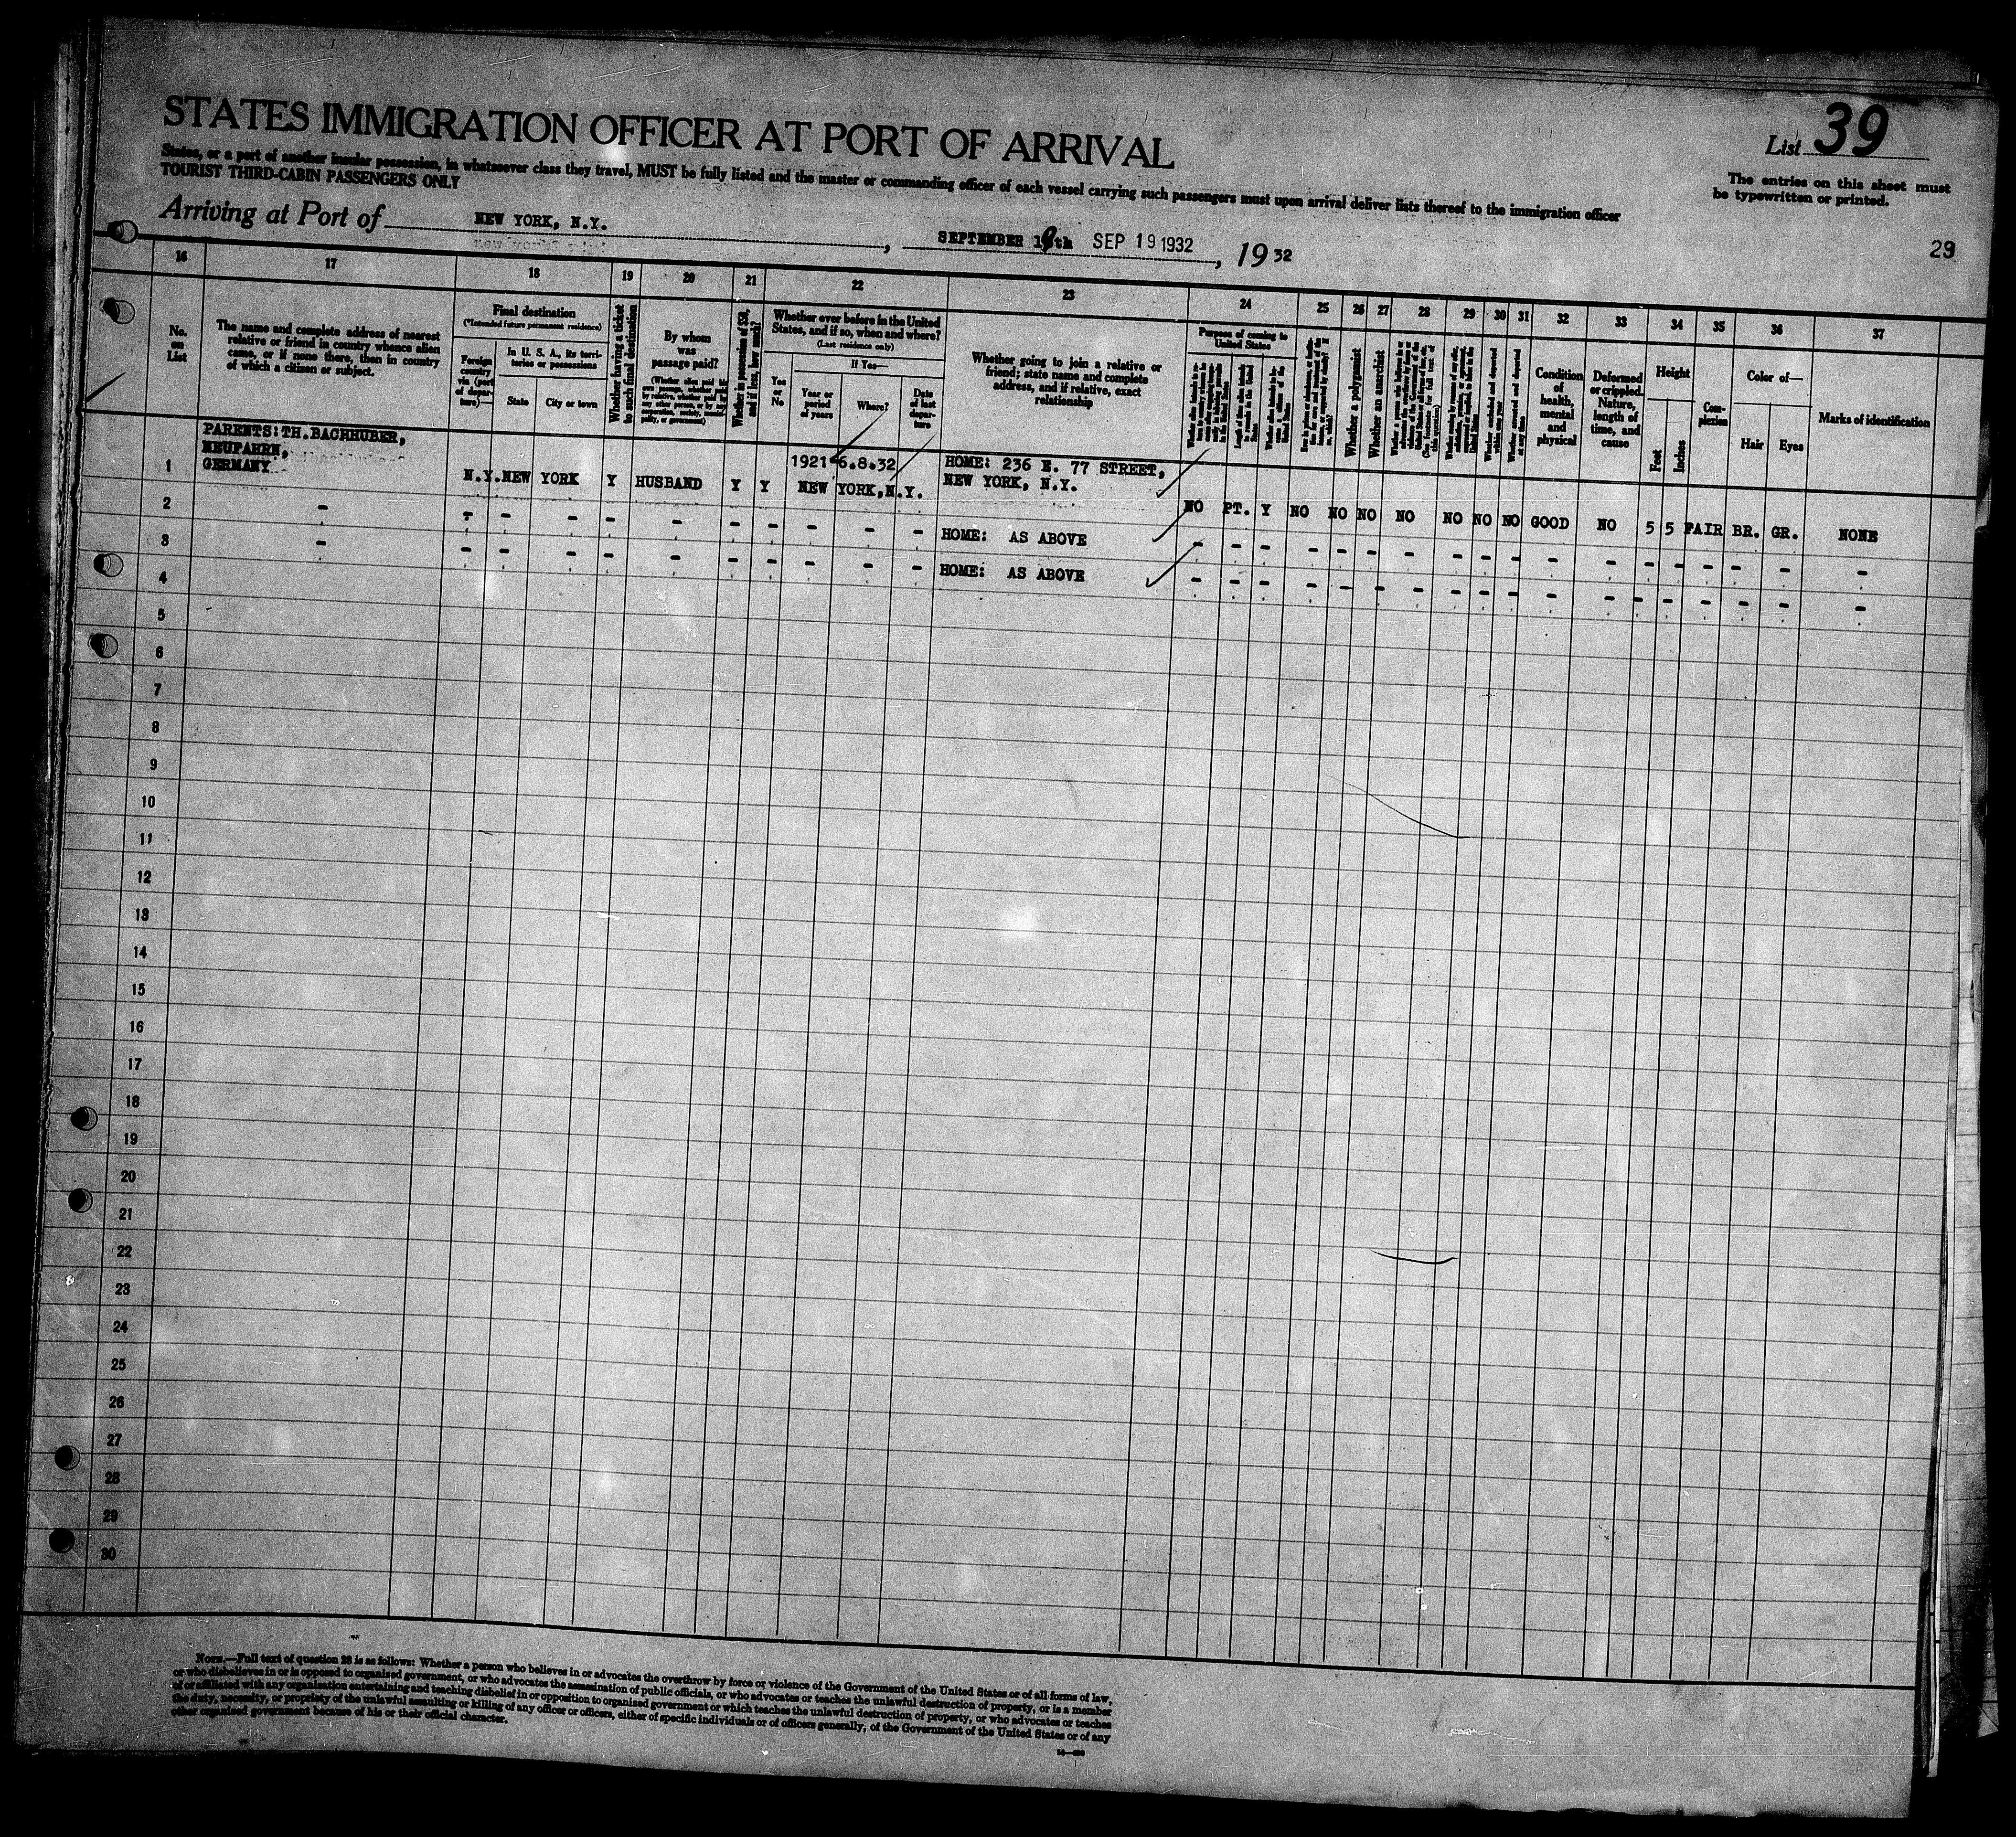 STATES IMMIGRATION OFFICER AT PORT OF ARRIVAL
List 39
States, or a port of another insular possession, in whatsoever class they travel, MUST be fully listed and the master or commanding officer of each vessel carrying such passengers must upon arrival deliver lists thereof to the immigration officer
TOURIST THIRD-CABIN PASSENGERS ONLY
The entries on this sheet must
be typewritten or printed.
Arriving at Port of NEW YORK, N.Y. , SEPTEMBER 19th SEP 19 1932 , 19 32
29
16 17 18 19 20 21 22 23 24 25 26 27 28 29 30 31 32 33 34 35 36 37
No.
on
List
The name and complete address of nearest
relative or friend in country whence alien
came, or if none there, then in country
of which a citizen or subject.
Final destination
(*Intended future permanent residence)
Foreign
country
via (port
of depar-
ture)—
In U. S. A., its terri-
tories or possessions
State
City or town
Whether having a ticket
to such final destination
By whom
was
passage paid?
Whether in possession of $50,
and if less, how much?
Whether ever before in the United
States, and if so, when and where?
(Last residence only)
Yes
or
No
If Yes—
Year or
period
of years
Where?
Date
of last
depar-
ture
Whether going to join a relative or
friend; state name and complete
address, and if relative, exact
relationship
Purpose of coming to
United States
Whether a polygamist
Whether an anarchist
Condition
of
health,
mental
and
physical
Deformed
or crippled.
Nature,
length of
time, and
cause
Height
Feet
Inches
Com-
plexion
Color of—
Hair
Eyes
Marks of identification
PARENTS:TH.BACHHUBER,
NEUFAHRN,
GERMANY
1 N.Y. NEW YORK Y HUSBAND Y Y 1921-6.8.32 NEW YORK,N.Y. HOME: 236 E. 77 STREET,
NEW YORK, N.Y.
NO PT. Y NO NO NO NO NO NO NO GOOD NO 5 5 FAIR BR. GR. NONE
2 - - - - - - - - - - - HOME: AS ABOVE - - - - - - - - - - - - - - - - - -
3 - - - - - - - - - - - HOME: AS ABOVE - - - - - - - - - - - - - - - - - -
4
5
6
7
8
9
10
11
12
13
14
15
16
17
18
19
20
21
22
23
24
25
26
27
28
29
30
NOTE.—Full text of question 28 is as follows: Whether a person who believes in or advocates the overthrow by force or violence of the Government of the United States or of all forms of law,
or who disbelieves in or is opposed to organized government, or who advocates the assassination of public officials, or who advocates or teaches the unlawful destruction of property, or is a member
of or affiliated with any organization entertaining and teaching disbelief in or opposition to organized government or which teaches the unlawful destruction of property, or who advocates or teaches
the duty, necessity, or propriety of the unlawful assaulting or killing of any officer or officers, either of specific individuals or of officers generally, of the Government of the United States or of any
other organized government because of his or their official character.